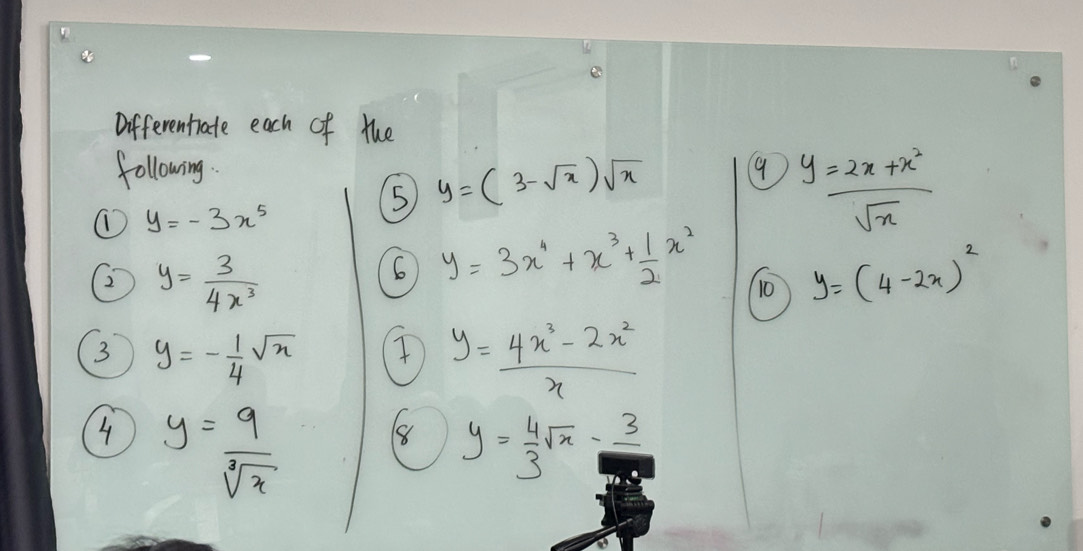 Differentiate each of the
following..
① y = -3x⁵
② y = 3/(4x³)
③ y = -1/4 √x
④ y = 9/∛x
⑤ y = (3-√x)√x
⑥ y = 3x⁴ + x³ + 1/2 x²
⑦ y = (4x³ - 2x²)/x
⑧ y = 4/3 √x - 3/
⑨ y = (2x + x²)/√x
⑩ y = (4-2x)²